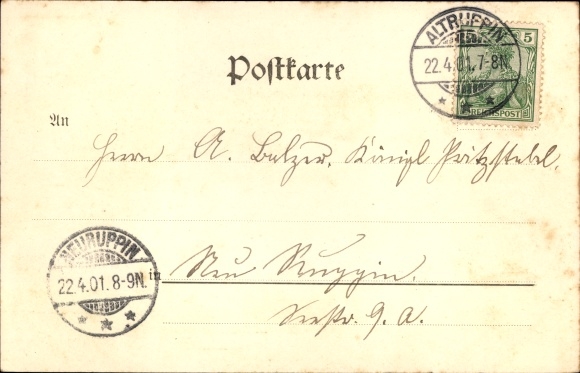 ALTRUPPIN
22.4.01.7-8N.
5
REICHSPOST
Postkarte
An
Herrn A. Balzer, Königl
NEURUPPIN
22.4.01.8-9N.
in Neu Ruppin.
Seestr. 9. a.